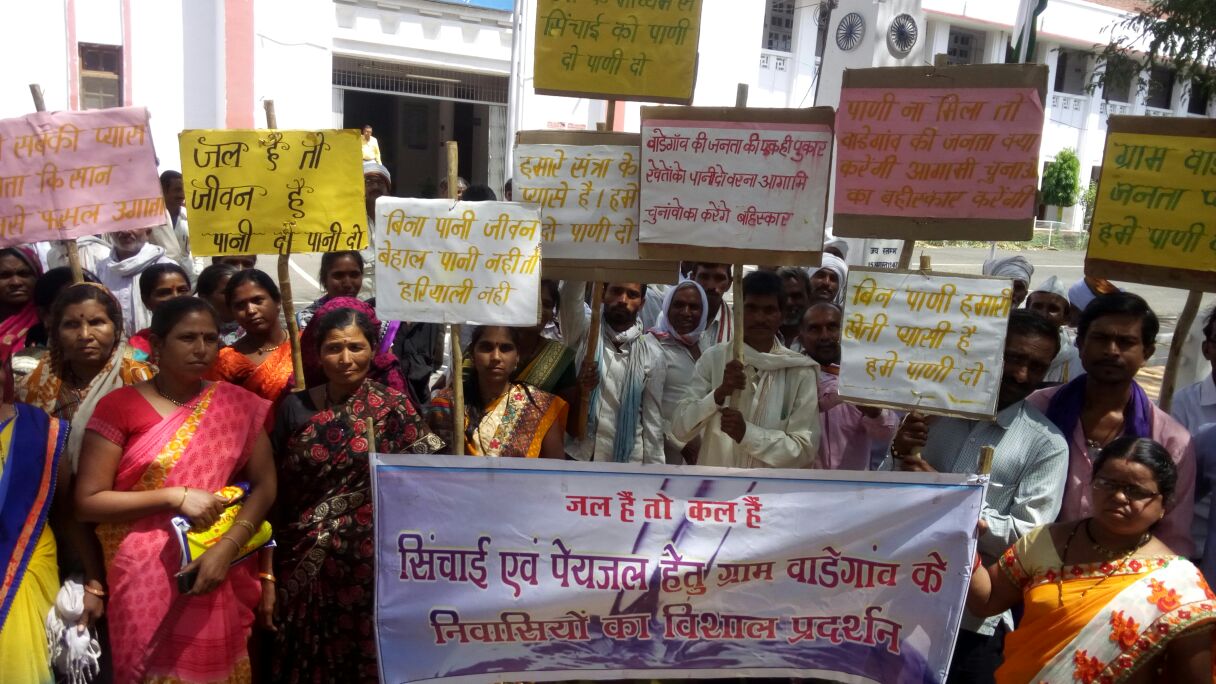 सिंचाई को पाणी
दो पाणी दो
सबकी प्यास
किसान
फसल उगाता
जल है तो
जीवन है
पानी दो पानी दो
हमारे संत्रा के
प्यासे है। हमे
दो पाणी दो
वाडेगाँव की जनता की एक ही पुकार
खेतोंको पानी दो वरना आगामि
चुनांवोका करेंगे बहिस्कार
पाणी ना मिला तो
वाडेगांव की जनता क्या
करेगी आगामी चुनाओ
का बहीस्कार करेगी
ग्राम
जनता
हमे पाणी
बिना पानी जीवन
बेहाल पानी नही तो
हरियाली नही
बिन पाणी हमारी
खेती प्यासी है
हमे पाणी दो
जय स्तम्भ
जल हैं तो कल हैं
सिंचाई एवं पेयजल हेतु ग्राम वाडेगांव के
निवासियों का विशाल प्रदर्शन